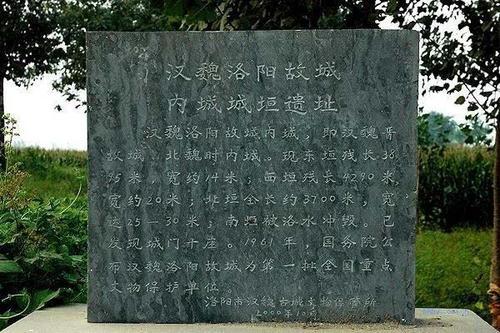 汉魏洛阳故城
内城城垣遗址
汉魏洛阳故城内城，即汉魏晋
故城、北魏时内城。现东垣残长38
95米，宽约14米；西垣残长4290米，
宽约20米；北垣全长约3700米，宽
达25—30米；南垣被洛水冲毁。已
发现城门十座。1961年，国务院公
布汉魏洛阳故城为第一批全国重点
文物保护单位。
洛阳市汉魏古城文物保管所
2000年10月